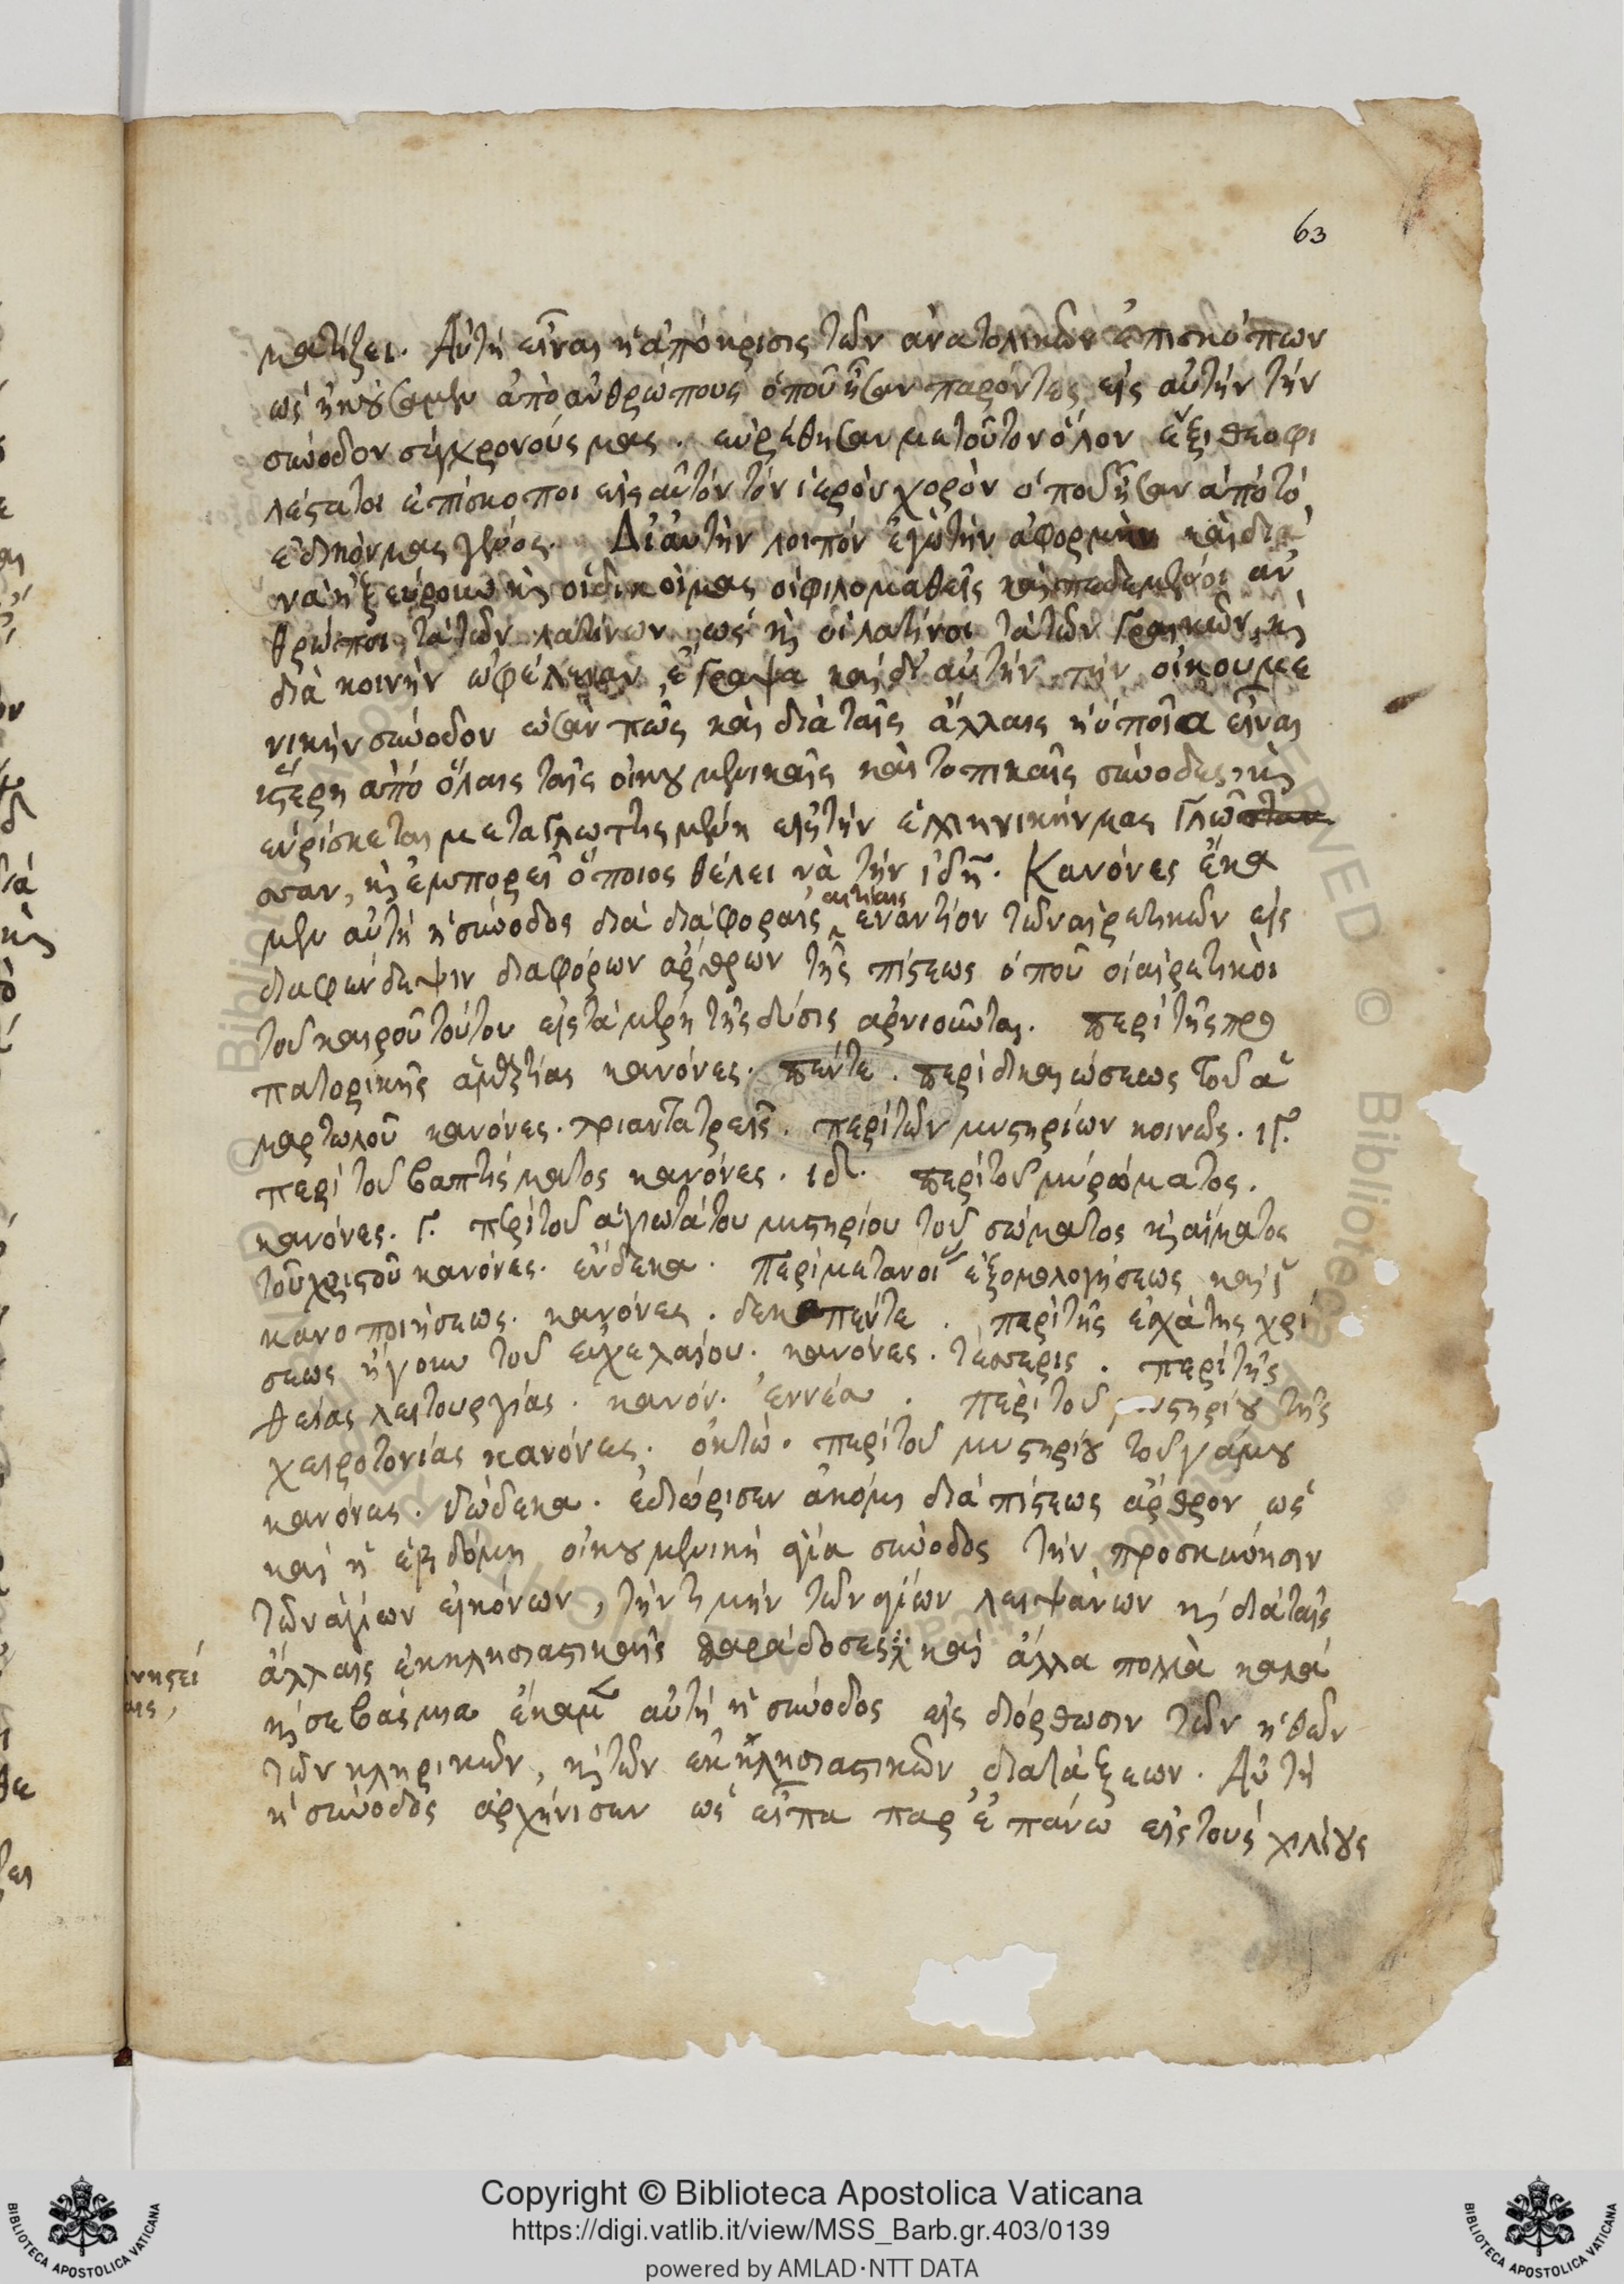 63
κατήξει. Αὐτὴ εἶναι ἡ ἀπόκρισις τῶν ἀνατολικῶν ἐπισκόπων
ὡς ἠκούσαμεν ἀπὸ ἀνθρώπους ὁποῦ ἦσαν παρόντες εἰς αὐτὴν τὴν
σύνοδον συγχρονούς μας. εὑρέθησαν με τοῦτον ὅλον ἕξι θεοφι
λέστατοι ἐπίσκοποι εἰς αὐτὸν τὸν ἱερὸν χορὸν ὁποῦ ἦσαν ἀπὸ τὸ
ἐδικόν μας γένος. Δι αὐτὴν λοιπόν ἐγὼ τὴν ἀφορμὴν καὶ διὰ
νὰ ἠξεύρουν κὶ οἱ δικοί μας οἱ φιλομαθεῖς καὶ πεδεμένοι ἀν
θρώποι τὰ τῶν λατίνων, ὡς κὶ οἱ λατίνοι τὰ τῶν Γραικῶν, κὶ
διὰ κοινὴν ὠφέλειαν, ἔγραψα καὶ δι αὐτὴν τὴν οἰκουμε
νικὴν σύνοδον ὡσὰν πῶς καὶ διὰ ταῖς ἄλλαις ἡ ὁποῖα εἶναι
ὕστερη ἀπὸ ὅλαις ταῖς οἰκουμενικαῖς καὶ τοπικαῖς σύνοδες, κὶ
εὑρίσκεται μεταγλωττισμένη εἰς τὴν ἑλληνικήν μας Γλῶ
σσαν, κὶ ἐμπορεῖ ὅποιος θέλει νὰ τὴν ἰδῇ. Κανόνες ἔκα
αἰτίαις
μεν αὐτὴ ἡ σύνοδος διὰ διάφοραις ἐναντίον τῶν αἱρετικῶν εἰς
διαφένδεψιν διαφόρων ἄρθρων τῆς πίστεως ὁποῦ οἱ αἱρετικοὶ
τοῦ καιροῦ τούτου εἰς τὰ μέρη τῆς δύσις ἀρνιοῦνται. περὶ τῆς προ
πατορικῆς ἁμαρτίας κανόνες. πέντε. περὶ δικαιώσεως τοῦ ἁ
μαρτωλοῦ κανόνες. τριαντατρεῖς. περὶ τῶν μυστηρίων κοινῶς. ιγ.
περὶ τοῦ βαπτίσματος κανόνες. ιδ. περὶ τοῦ μύρώματος.
κανόνες. γ. περὶ τοῦ ἁγιωτάτου μυστηρίου τοῦ σώματος κὶ αἵματος
τοῦ χριστοῦ κανόνες. ἕνδεκα. Περὶ μετανοί ἐξομολογήσεως καὶ ἱ
κανοποιήσεως. κανόνες. δεκαπέντε. περὶ τῆς ἐσχάτης χρί
σεως ἤγουν τοῦ εὐχελαίου. κανόνες. τέσσερις. περὶ τῆς
θείας λειτουργίας. κανόν. ἐννέα. περὶ τοῦ μυστηρίου τῆς
χειροτονίας κανόνες. ὀκτώ. περὶ τοῦ μυστηρίου τοῦ γάμου
κανόνες. δώδεκα. ἐδιώρισεν ἀκόμι διὰ πίστεως ἄρθρον ὡς
καὶ ἡ ἑβδόμη οἰκουμενικὴ ἁγία σύνοδος τὴν προσκύνησιν
τῶν ἁγίων εἰκόνων, τὴν τιμὴν τῶν ἁγίων λειψάνων κὶ διὰ ταῖς
ἄλλαις ἐκκλησιαστικαῖς παράδοσες καὶ ἄλλα πολλὰ καλὰ
κὶ σεβάσμια ἔκαμεν αὐτὴ ἡ σύνοδος εἰς διόρθωσιν τῶν ἠθῶν
τῶν κληρικῶν, κὶ τῶν ἐκκλησιαστικῶν διατάξεων. Αὐτὴ
ἡ σύνοδος ἀρχήνισεν ὡς εἶπα παρ ἐπάνω εἰς τοὺς χιλίους
Copyright © Biblioteca Apostolica Vaticana
https://digi.vatlib.it/view/MSS_Barb.gr.403/0139
powered by AMLAD·NTT DATA
BIBLIOTECA APOSTOLICA VATICANA
BIBLIOTECA APOSTOLICA VATICANA